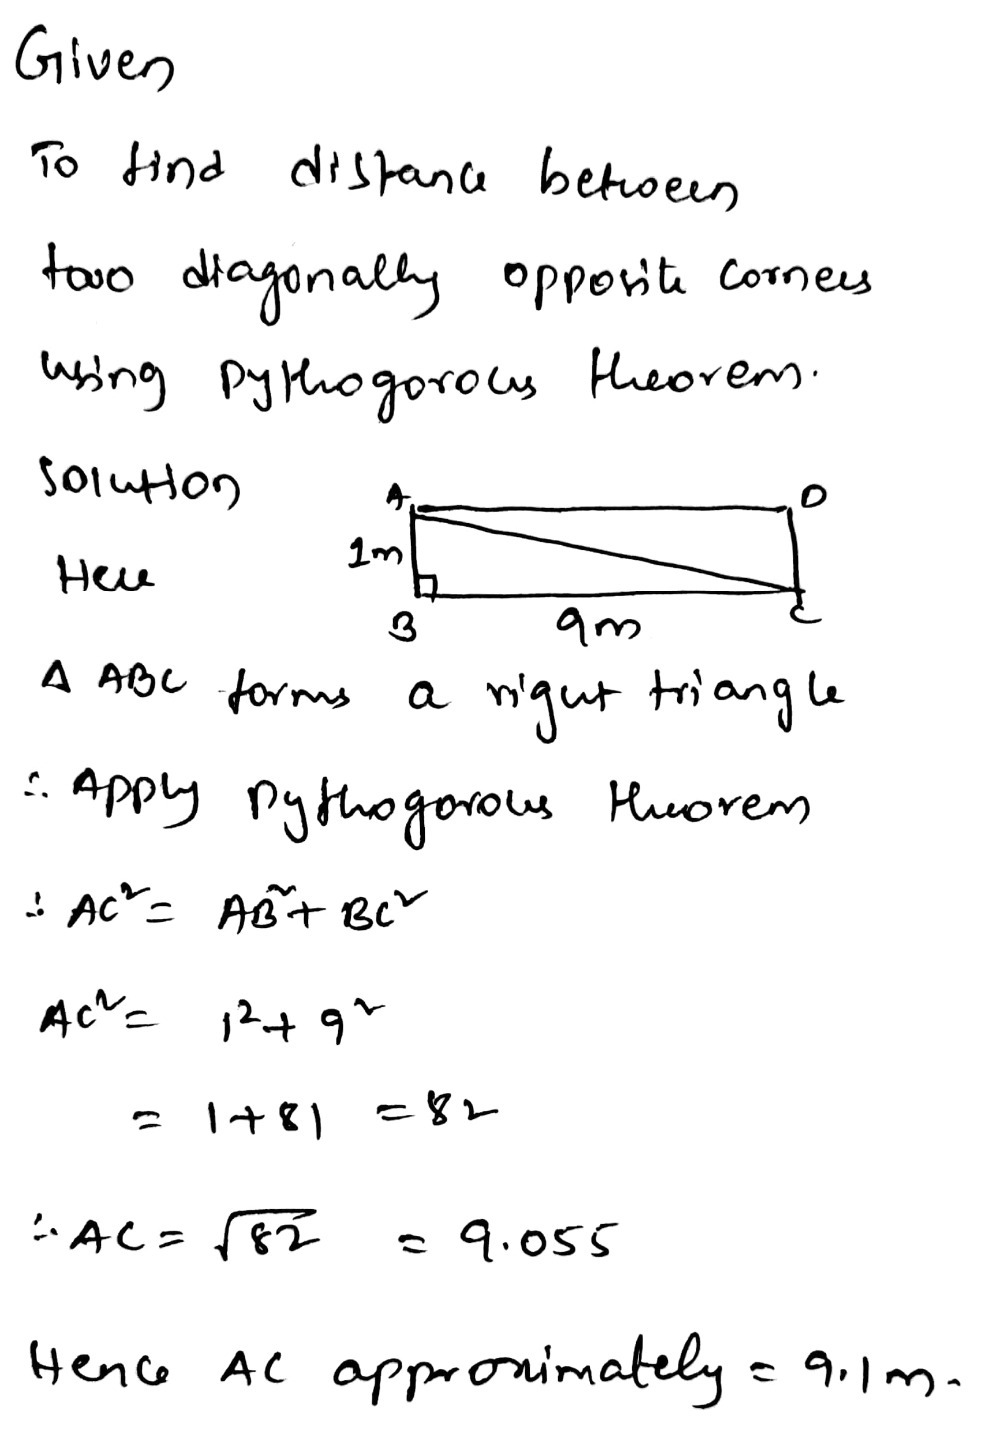 Given
To find distance between
two diagonally opposite corners
using pythogorous theorem.
Solution
A D
Here 1m
B 9m C
Δ ABC forms a right triangle
∴ Apply pythogorous theorem
∴ AC² = AB² + BC²
AC² = 1² + 9²
= 1+81 = 82
∴ AC = √82 = 9.055
Hence AC approximately = 9.1m.